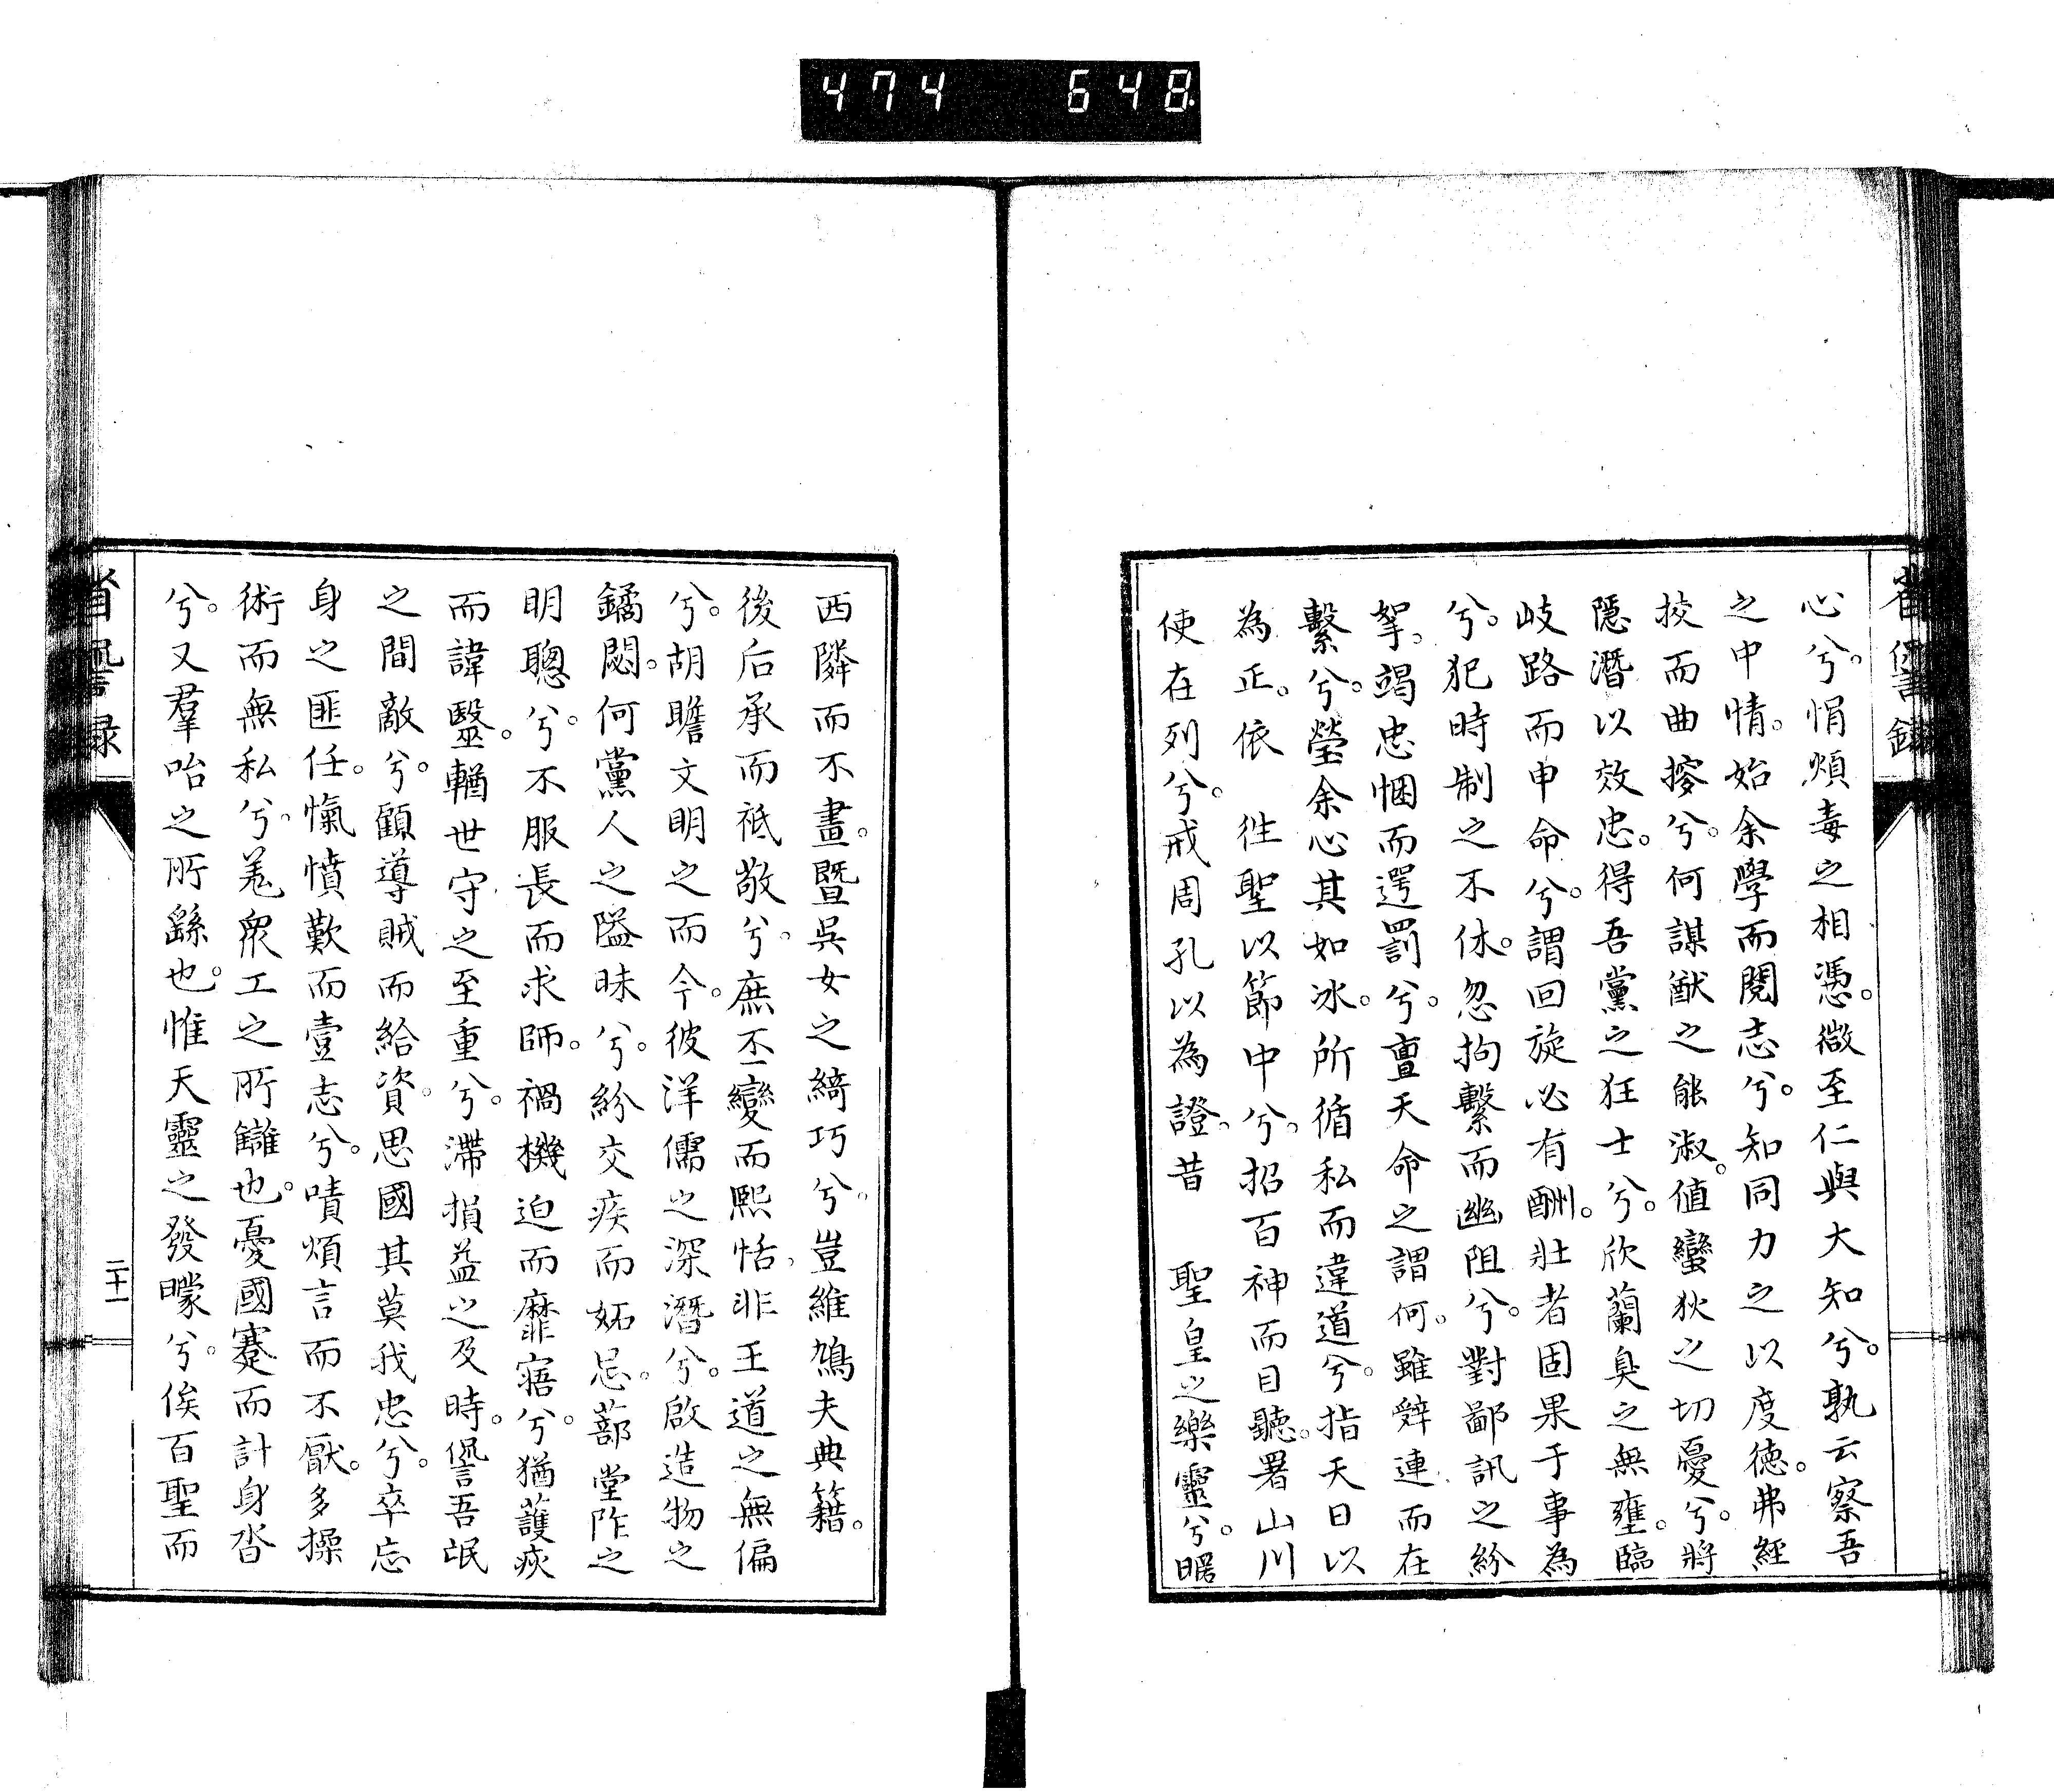 474 648
省諐録
心兮。悁煩毒之相憑。微至仁與大知兮。孰云察吾
之中情。始余學而閱志兮。知同力之以度德。弗經
挍而曲摎兮。何謀猷之能淑。值蠻狄之切憂兮。將
隱潛以效忠。得吾黨之狂士兮。欣蘭臭之無壅。臨
岐路而申命兮。謂回旋必有酬。壯者固果于事為
兮。犯時制之不休。忽拘繫而幽阻兮。對鄙訊之紛
挐。竭忠悃而遌罰兮。亶天命之謂何。雖辤連而在
繫兮。瑩余心其如冰。所循私而違道兮。指天日以
為正。依 徃聖以節中兮。招百神而目聽。署山川
使在列兮。戒周孔以為證。昔 聖皇之樂靈兮。暱
西隣而不畫。暨吳女之綺巧兮。豈維鳩夫典籍。
後后承而祗敬兮。庶丕變而熙恬。非王道之無偏
兮。胡瞻文明之而今。彼洋儒之深潛兮。啟造物之
鐍閟。何黨人之隘昧兮。紛交疾而妬忌。蔀堂阼之
明聰兮。不服長而求師。禍機迫而靡寤兮。猶護疾
而諱毉。輶世守之至重兮。滯損益之及時。諐吾氓
之間敵兮。顧導賊而給資。思國其莫我忠兮。卒忘
身之匪任。愾憤歎而壹志兮。嘖煩言而不厭。多操
術而無私兮。羌眾工之所讎也。憂國蹇而計身沓
兮。又羣咍之所繇也。惟天靈之發曚兮。俟百聖而
省諐録
二十一